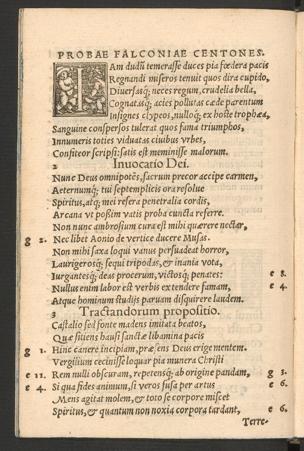 PROBAE FALCONIAE CENTONES.
IAm dudū temerasse duces pia fœdera pacis
Regnandi miseros tenuit quos dira cupido,
Diuersasq; neces regum, crudelia bella,
Cognatasq; acies pollutas cæde parentum
Insignes clypeos, nulloq; ex hoste trophæa,
Sanguine conspersos tulerat quos fama triumphos,
Innumeris toties viduatas ciuibus vrbes,
Confiteor scripsi: satis est meminisse malorum.
2 Inuocatio Dei.
Nunc Deus omnipotēs, sacrum precor accipe carmen,
Aeternumq; tui septemplicis ora resolue
Spiritus, atq; mei resera penetralia cordis,
Arcana vt possim vatis proba cuncta referre.
Non nunc ambrosium cura est mihi quærere nectar,
g 2. Nec libet Aonio de vertice ducere Musas.
Non mihi saxa loqui vanus persuadeat horror,
Laurigerosq; sequi tripodas, et inania vota,
Iurgantesq; deas procerum, victosq; penates: e 8.
Nullus enim labor est verbis extendere famam, e 4.
Atque hominum studijs paruam disquirere laudem.
3 Tractandorum propositio.
Castalio sed fonte madens imitata beatos,
Quæ sitiens hausi sanctæ libamina pacis
g 1. Hinc canere incipiam, præsens Deus erige mentem.
Vergilium cecinisse loquar pia munera Christi
e 11. Rem nulli obscuram, repetensq; ab origine pandam, g 3.
e 4. Si qua fides animum, si veros fusa per artus e 6.
Mens agitat molem, & toto se corpore miscet
Spiritus, & quantum non noxia corpora tardant, e 6.
Terre-